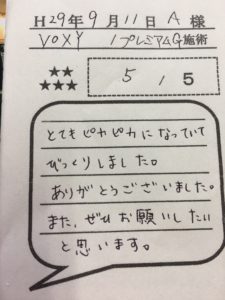 H29年9月11日 A 様
VOXY /プレミアムG施術
★★
★★★
5 / 5
とてもピカピカになっていて
びっくりしました。
ありがとうございました。
また、ぜひお願いしたい
と思います。